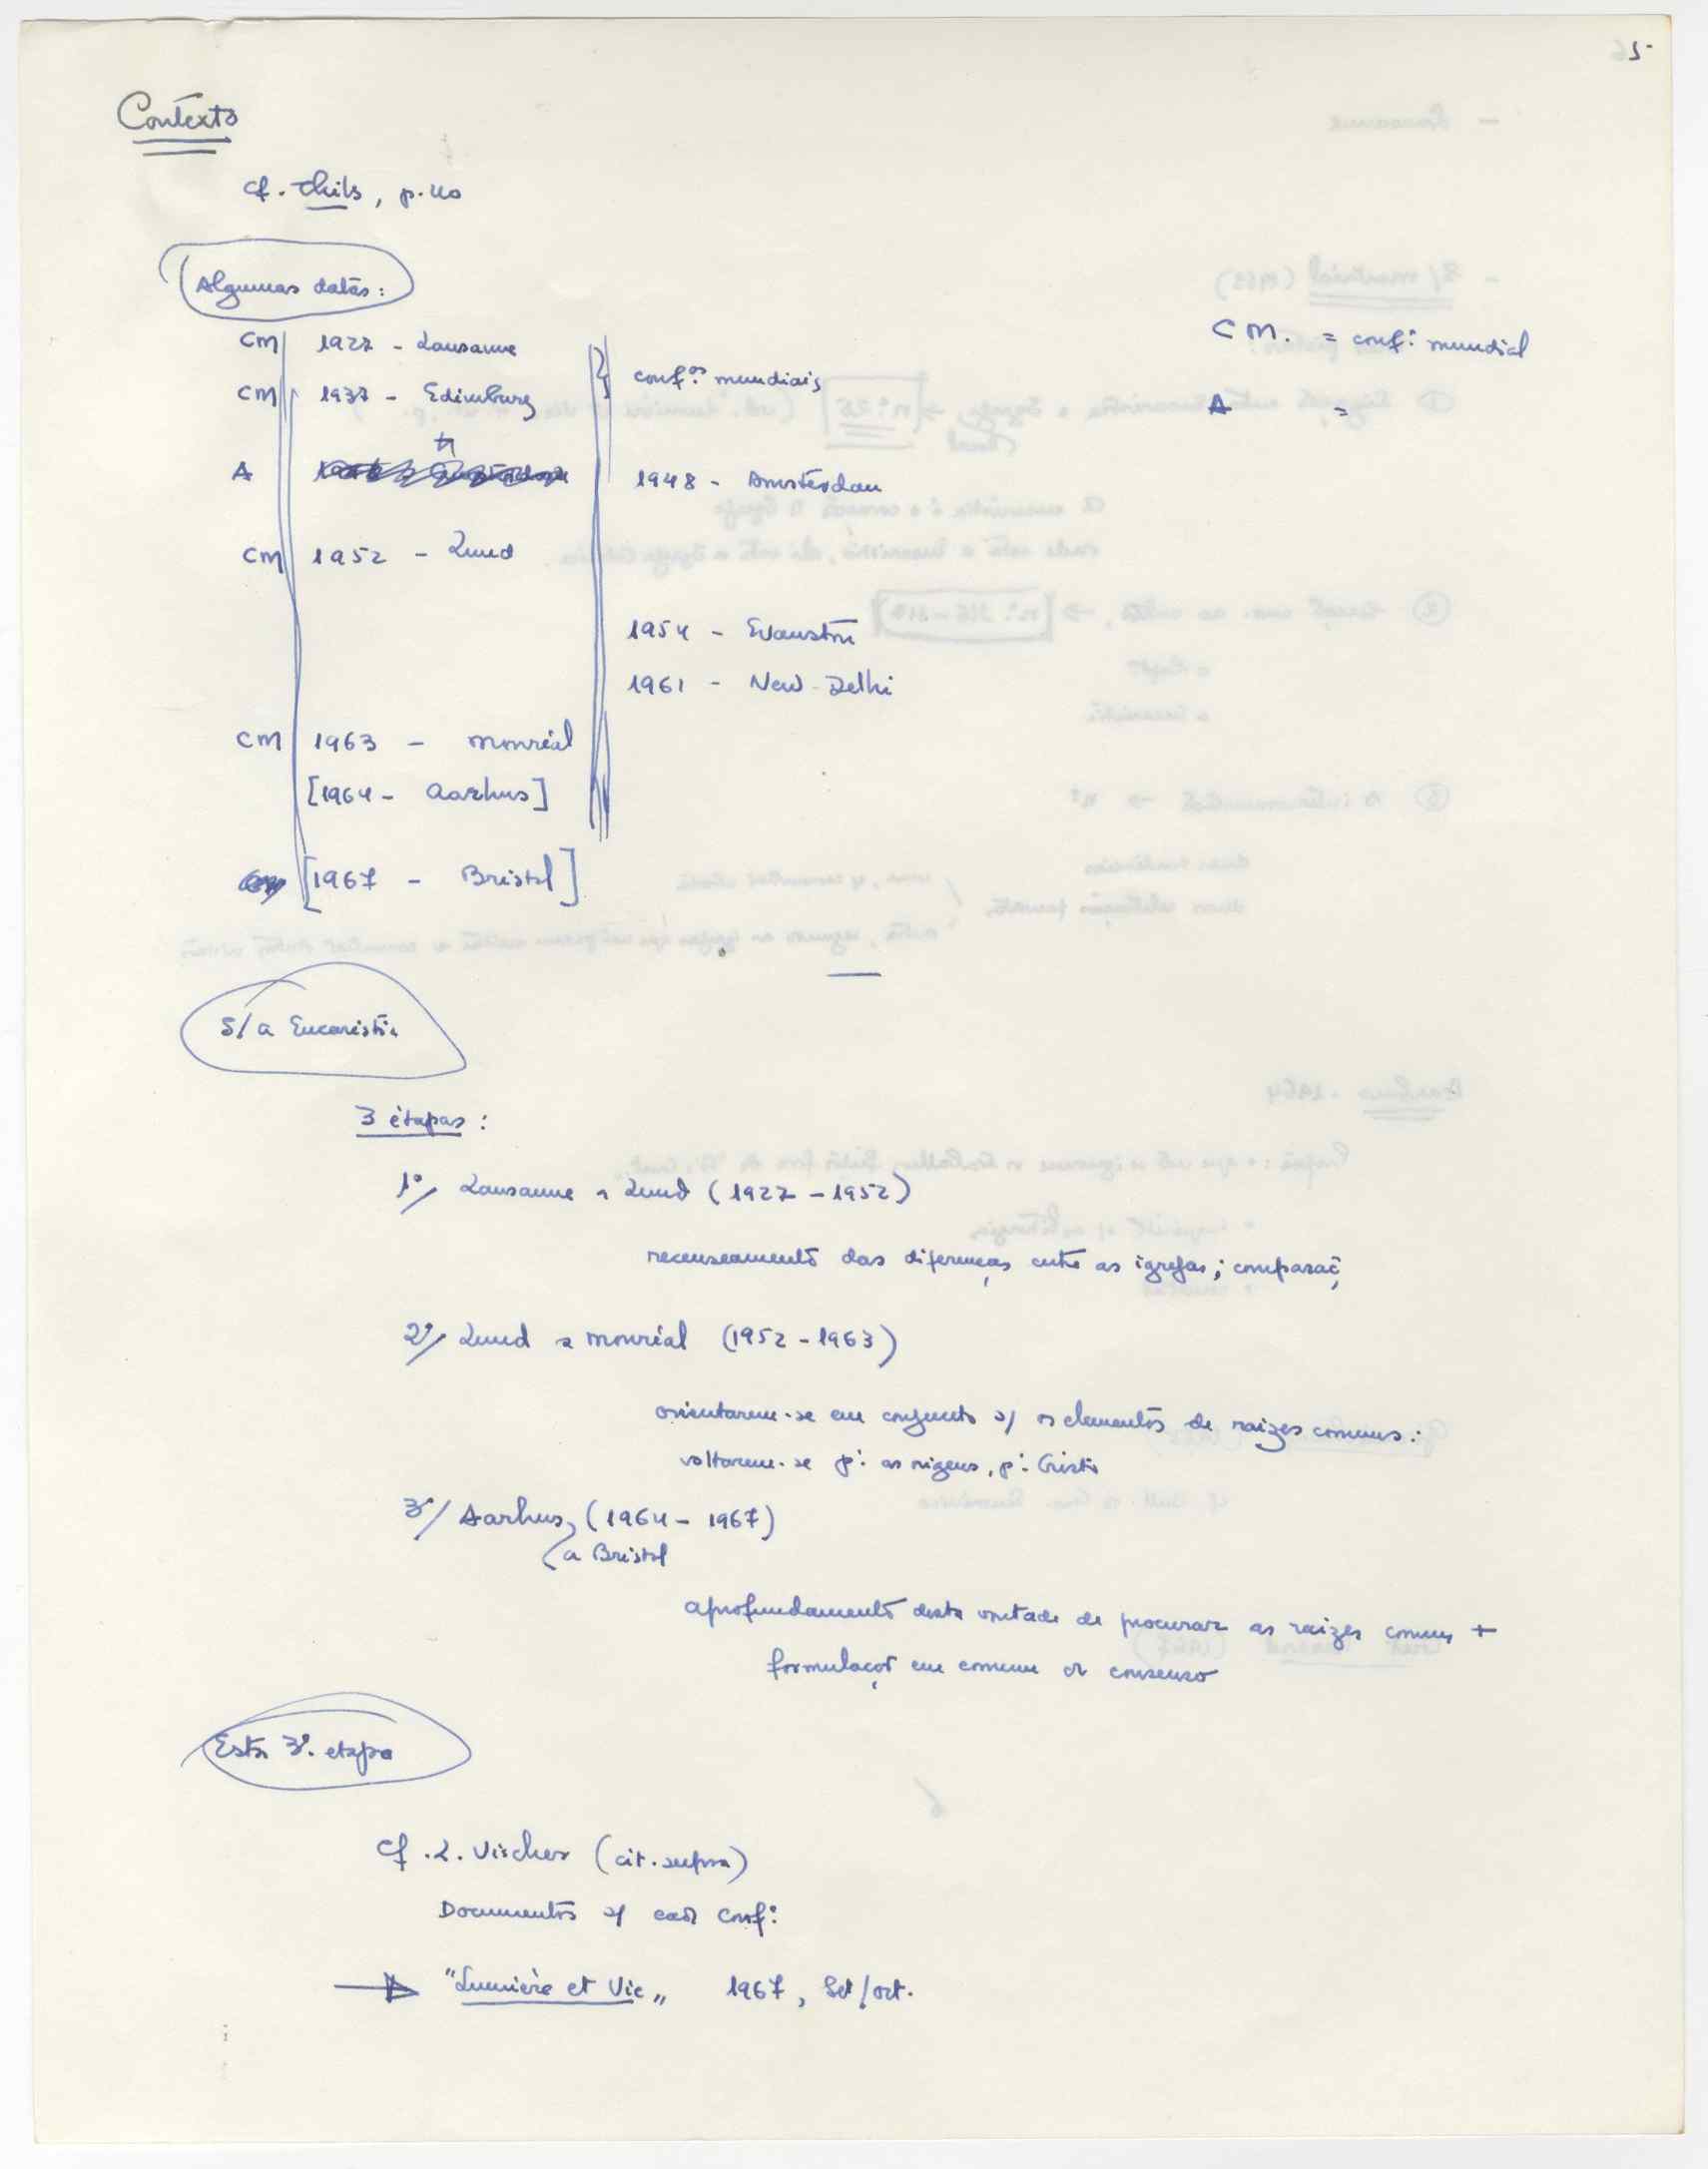 5
Contexto
cf. Thils, p. 40
Algumas datas:
CM 1927 - Lausanne
CM. = conf.ª mundial
conf.as mundiais
CM 1937 - Edimburg
A =
A
1948 - Amsterdam
CM 1952 - Lund
1954 - Evanston
1961 - New-Delhi
CM 1963 - Monréal
[1964 - Aarhus]
[1967 - Bristol]
S/ a Eucaristia
3 etapas:
1º/ Lausanne a Lund (1927 - 1952)
recenseamento das diferenças entre as igrejas; comparaç
2º/ Lund a Monréal (1952 - 1963)
orientarem-se em conjunto s/ os elementos de raizes comuns:
voltarem-se p.ª as origens, p.ª Cristo
3º/ Aarhus, (1964 - 1967)
a Bristol
aprofundamento desta vontade de procurar as raizes comuns +
formulaçõ em comum do consenso
Esta 3ª. etapa
cf. L. Vischer (cit. supra)
Documentos s/ cada conf.ª
"Lumière et Vie" 1967, Set/out.